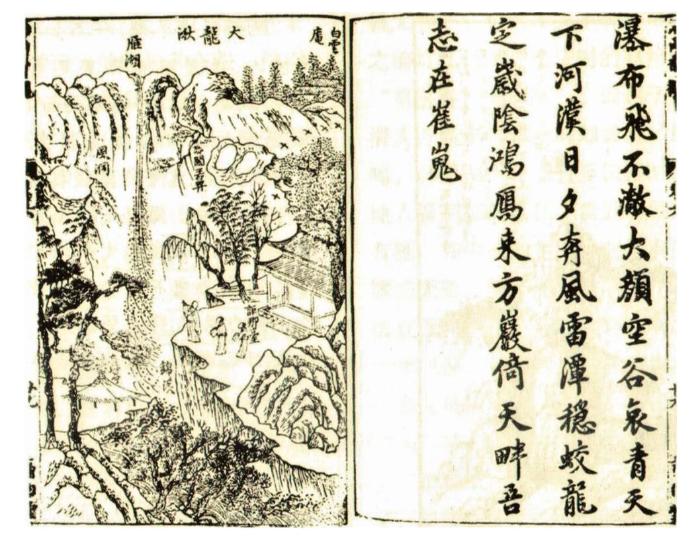 瀑布飛不澈大頹空谷哀青天
下河漢日夕奔風雷潭穩蛟龍
定歲陰鴻鴈来方巖倚天畔吾
志在崔嵬
白雲庵
大龍湫
雁湖
風洞